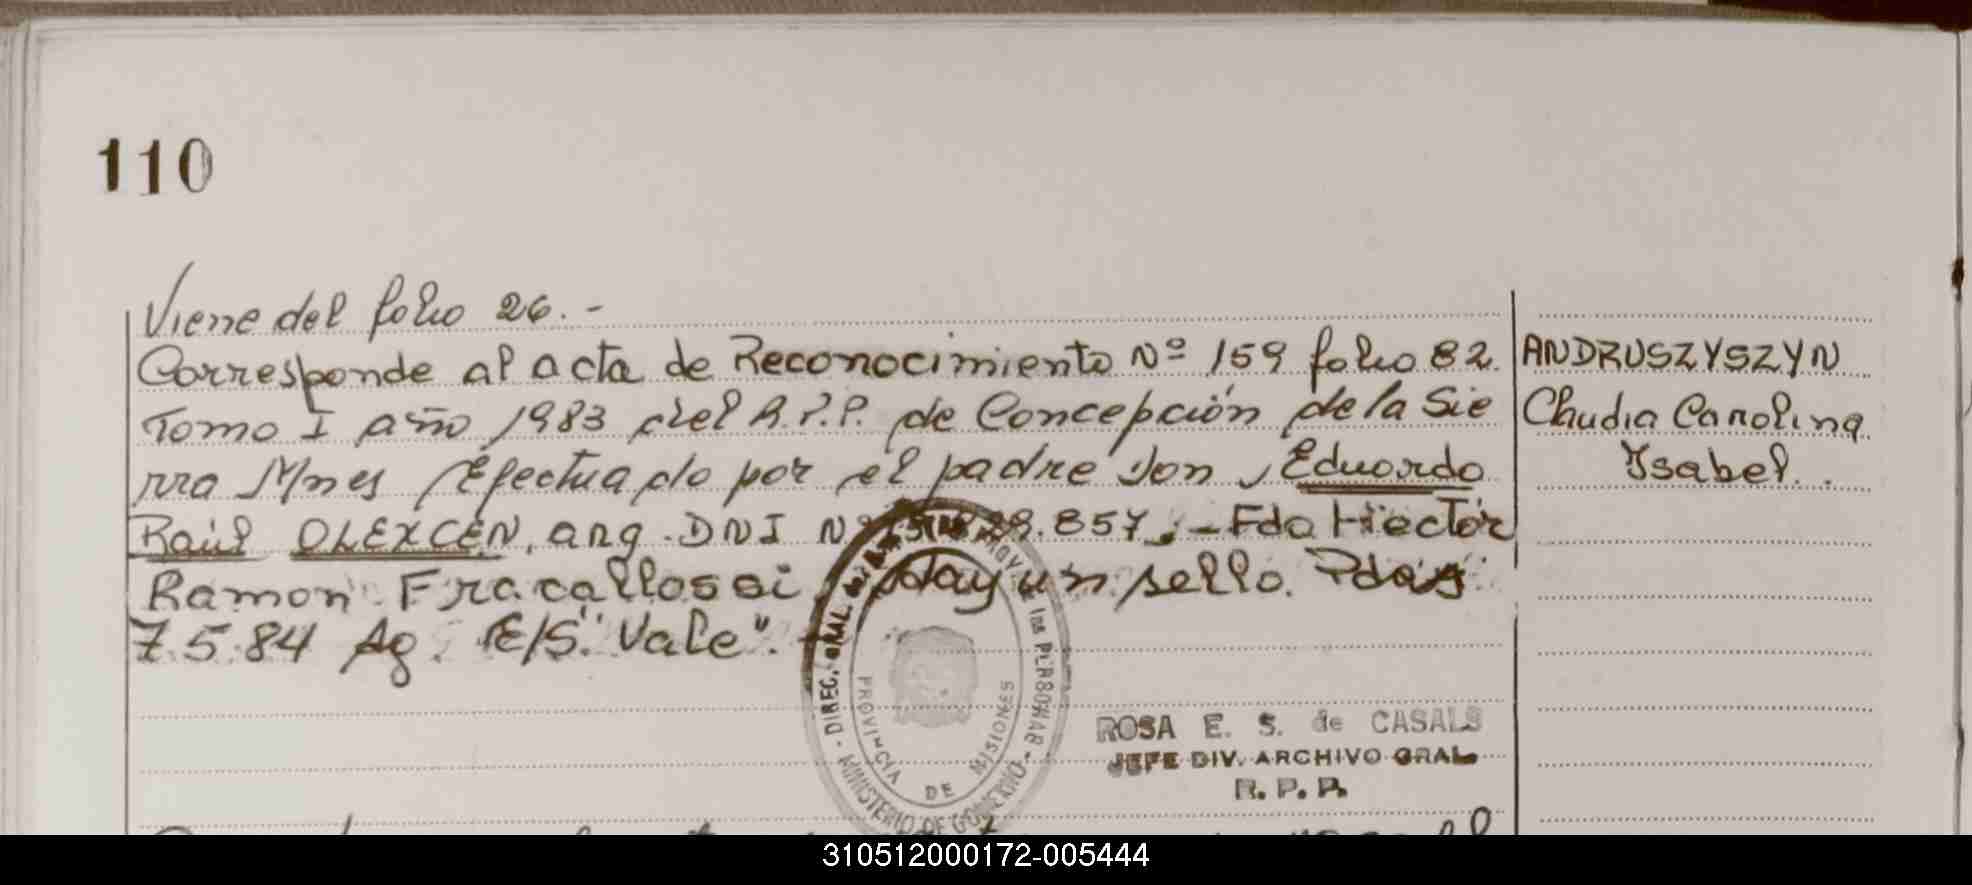 110
Viene del folio 26.-
Corresponde al acta de Reconocimiento Nº 159 folio 82.
Tomo I año 1983 del R.P.P. de Concepción de la Sie
rra Mnes Efectuado por el padre Don Eduardo
Raúl OLEXCEN, arg. DNI Nº .857.-Fdo Hector
Ramon Fracallossi Hay un sello. Pdas
7.5.84 Ag. E/S." Vale".-
ANDRUSZYSZYN
Claudia Carolina
Ysabel.
PROVINCIA DE MISIONES
MINISTERIO DE GOBIERNO
ROSA E. S. de CASALS
JEFE DIV. ARCHIVO GRAL
R. P. P.
310512000172-005444